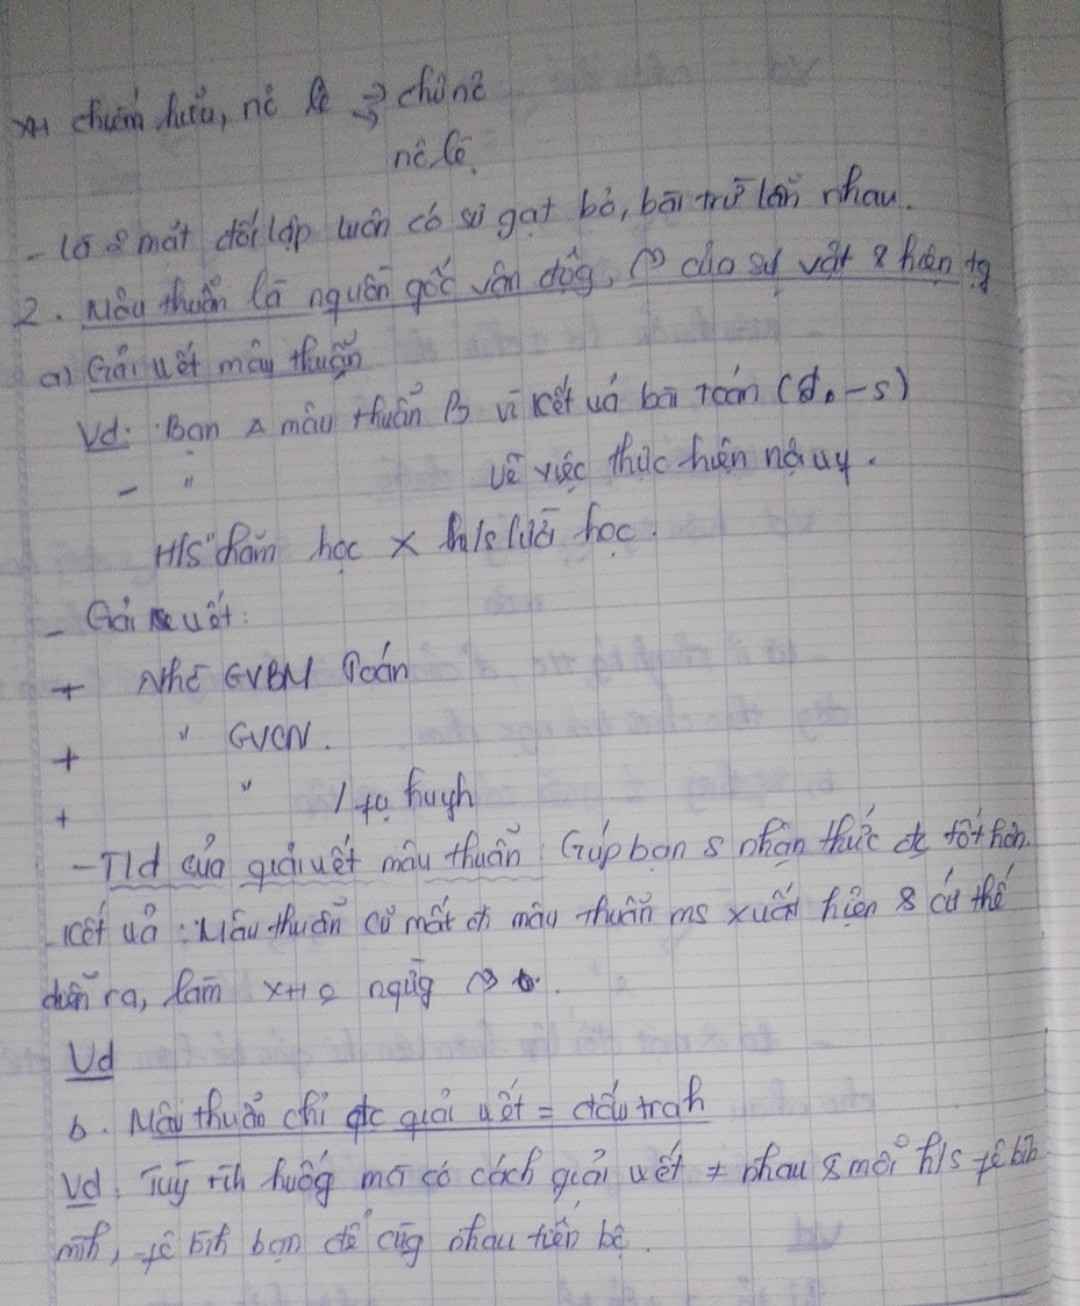 XH chiếm hữu, nô lệ → chủ nô
nô lệ.
- là 2 mặt đối lập luôn có sự gạt bỏ, bài trừ lẫn nhau.
2. Mâu thuẫn là nguồn gốc vận độg, của sự vật & hiện tg
a) Giải uết mâu thuẫn
Vd: Bạn A mâu thuẫn B vì kết uả bài toán (đ - s)
- " về việc thực hiện nội uy.
H/S chăm học x h/s lười học.
- Giải uết:
+ Nhờ GVBM Toán
+ " GVCN.
+ " huyh
- T/d của giải uết mâu thuẫn: Giúp bạn S nhận thức đc tốt hơn.
Kết uả: Mâu thuẫn cũ mất đi mâu thuẫn ms xuất hiện & cứ thế
diễn ra, làm XH ngừg
Vd
b. Mâu thuẫn chỉ đc giải uết = đấu trah
Vd: Tuỳ tìh huốg mà có cách giải uết ≠ nhau & mỗi h/s fê bìh
mìh, fê bìh bạn để cùg nhau tiến bộ.